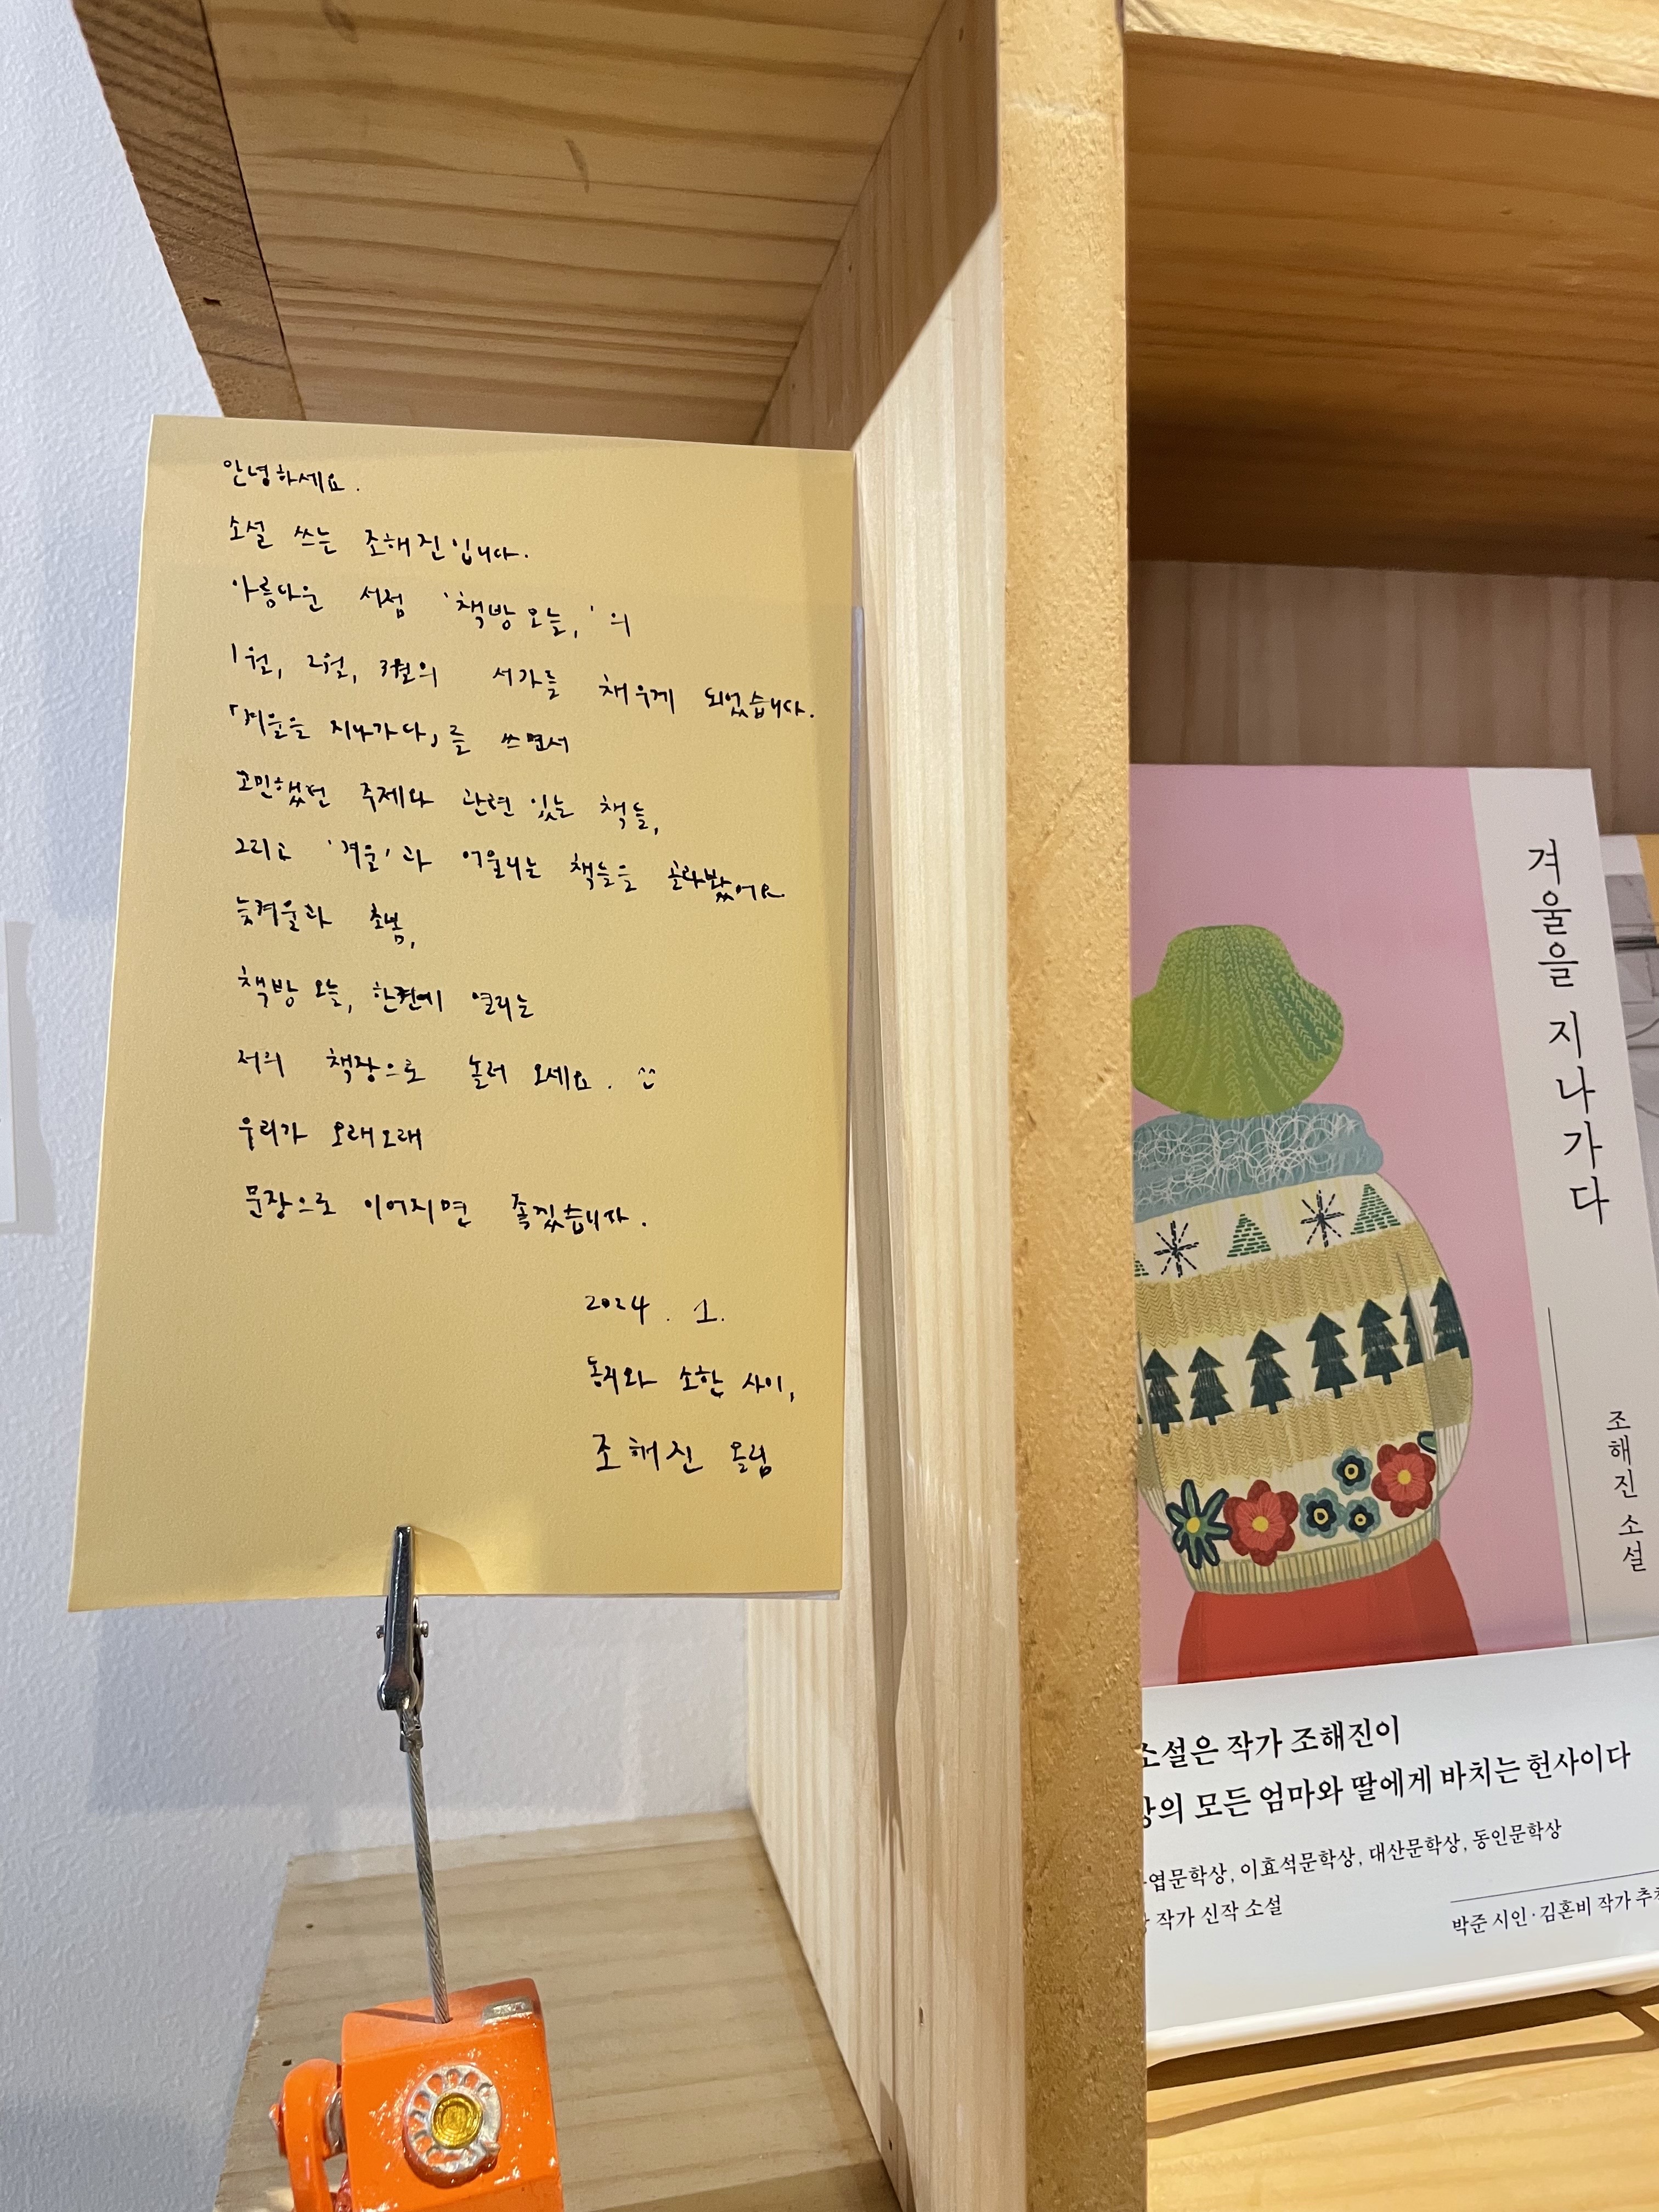 안녕하세요.
소설 쓰는 조해진입니다.
아름다운 서점 '책방오늘,'의
1월, 2월, 3월의 서가를 채우게 되었습니다.
「겨울을 지나가다」를 쓰면서
고민했던 주제와 관련 있는 책들,
그리고 '겨울'과 어울리는 책들을 골라봤어요
늦겨울과 초봄,
책방 오늘, 한켠에 열리는
저의 책장으로 놀러 오세요. ^^
우리가 오래오래
문장으로 이어지면 좋겠습니다.
2024. 1.
동지와 소한 사이,
조해진 올림
겨울을 지나가다
조해진 소설
소설은 작가 조해진이
상의 모든 엄마와 딸에게 바치는 헌사이다
엽문학상, 이효석문학상, 대산문학상, 동인문학상
작가 신작 소설
박준 시인·김혼비 작가 추천